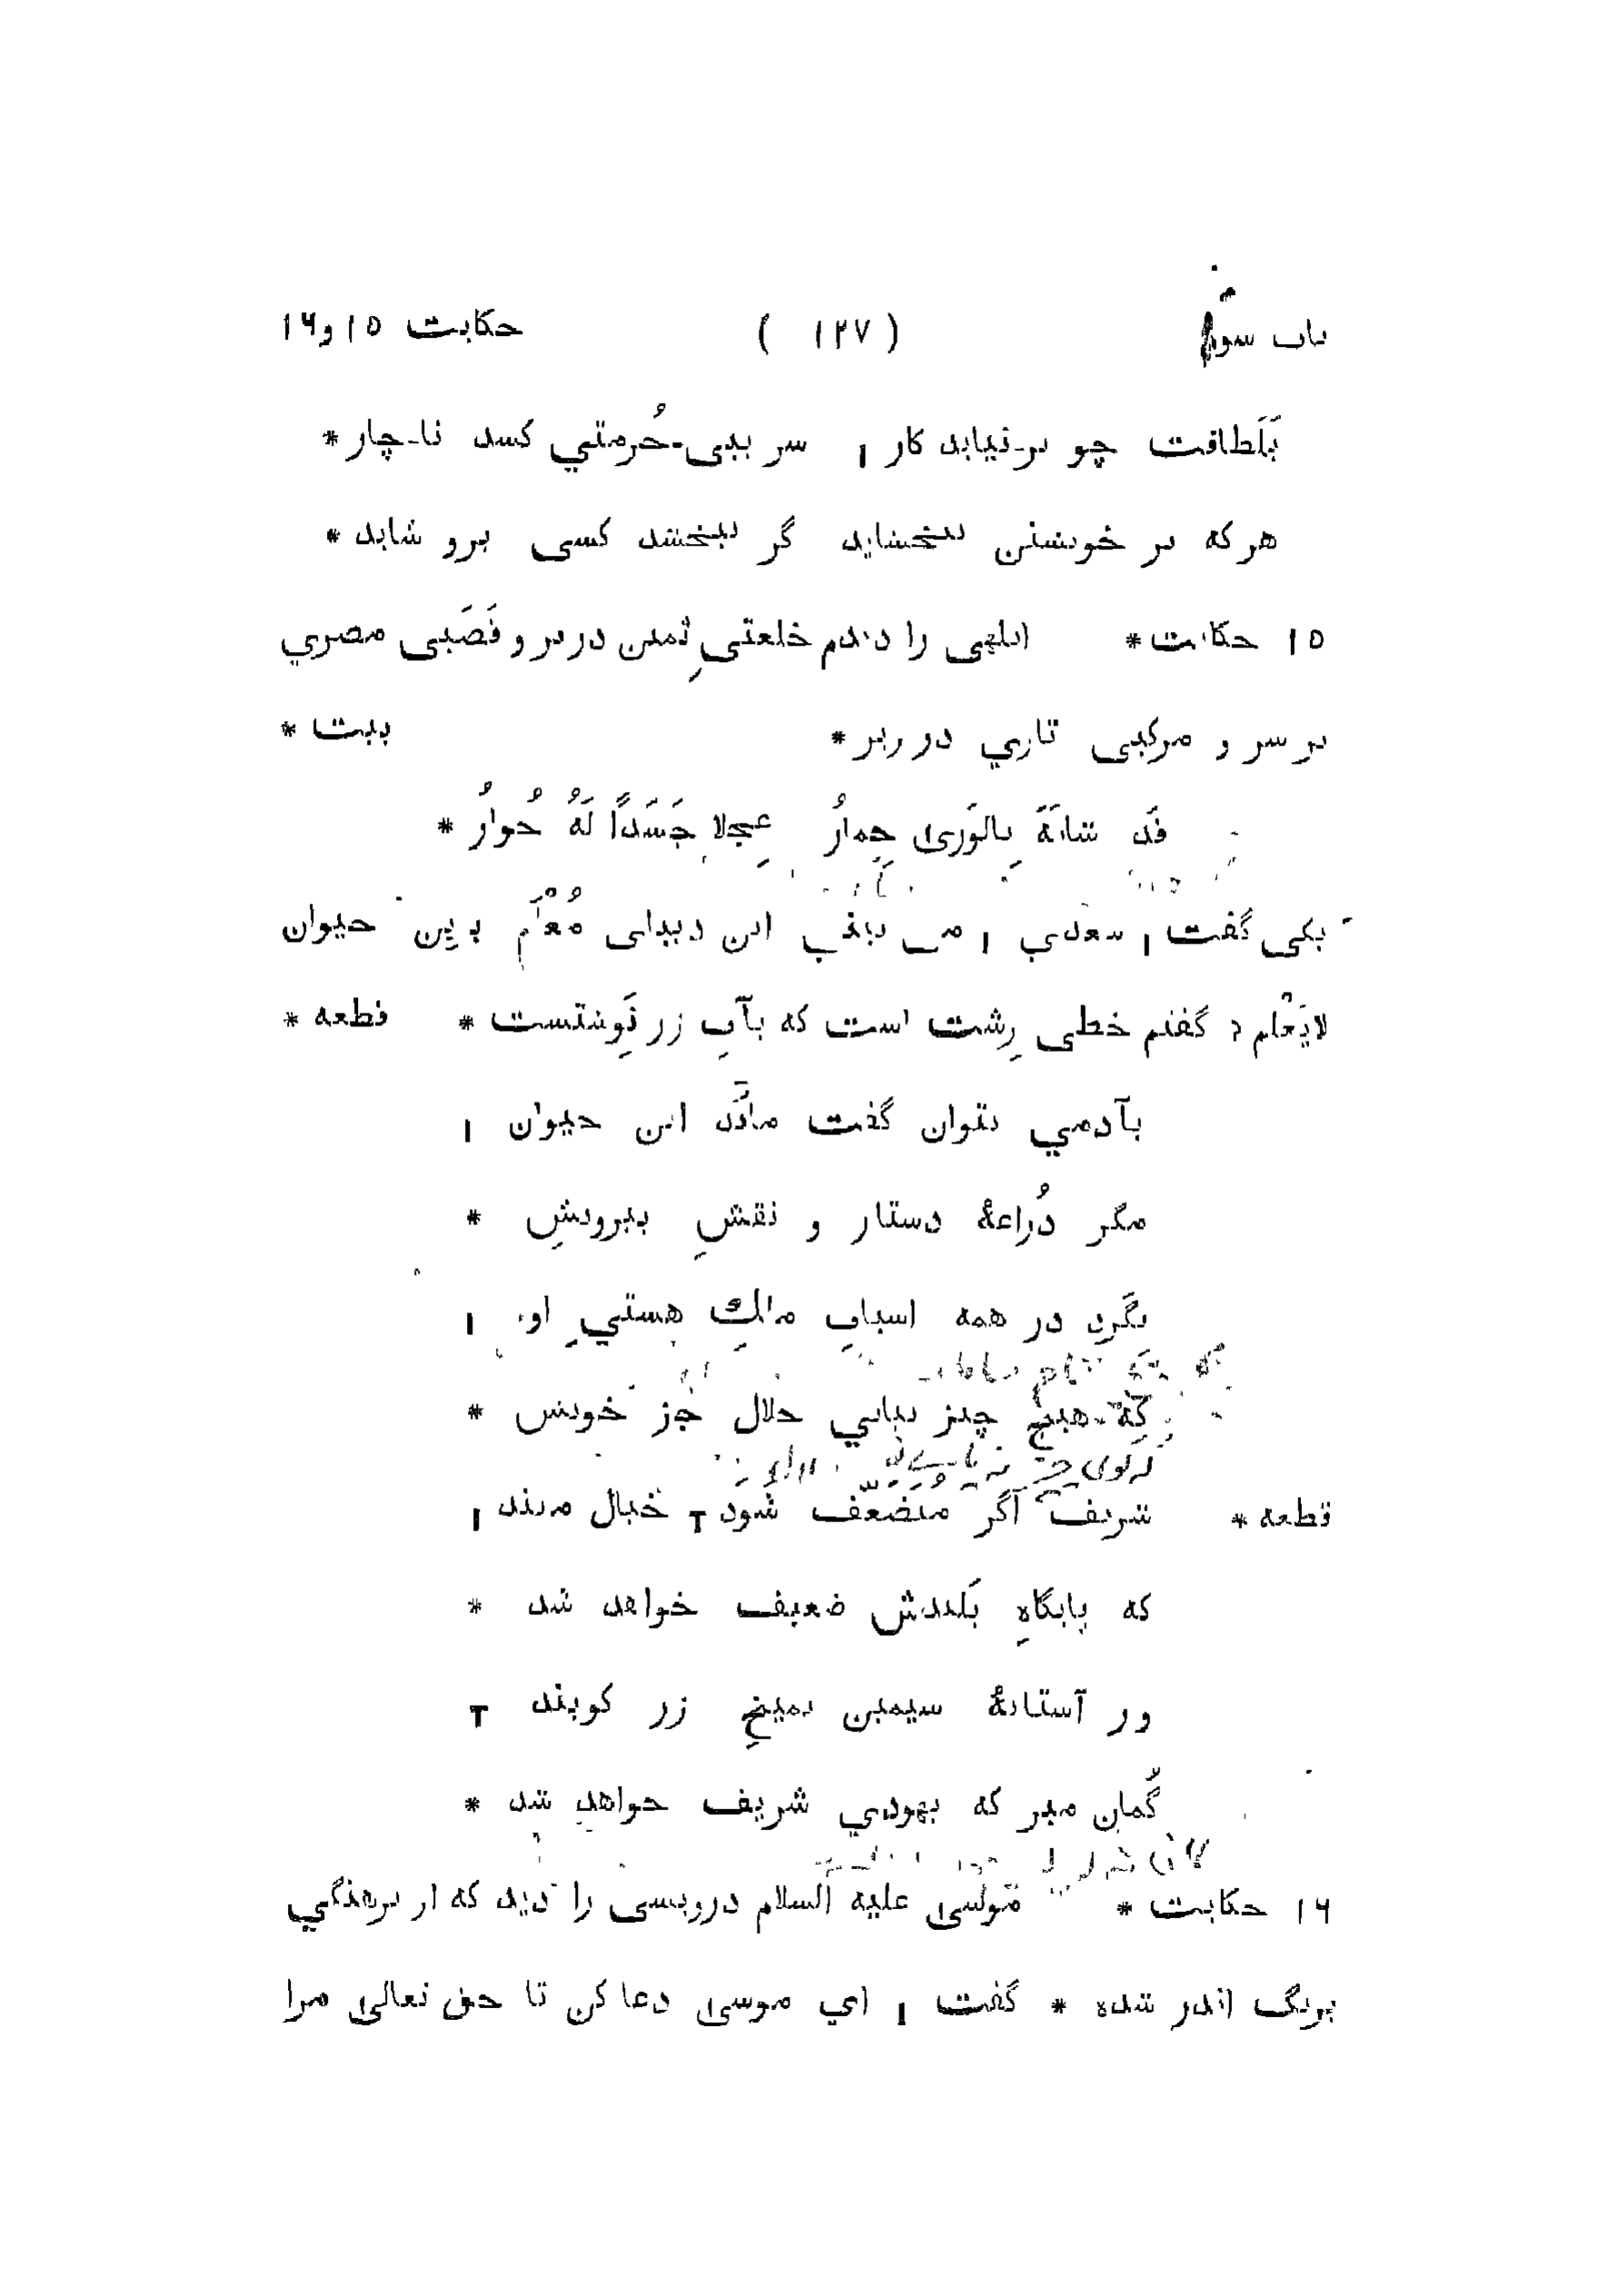 باب سوم ( ١٢٧ ) حکایت ١٥ و١٦
بَلَطافت چو بر-نیاید کار ا سر ببی-حُرمتي کشد نا-چار *
هر که بر خویشتن نبخشاید گر نبخشد کسی برو شاید *
١٥ حکایت * ابلهی را دیدم خلعتیِ ثمین در بر و قَصَبی مصري
بر سر و مرکبی تازي در زیر * بیت *
قَد شابَهَ بِالوَریٰ حِمارُ عِجلا جَسَداً لَهُ خُوارُ *
یکی گفت ا سعدي ا می بینی این دیبای مُعْلَم برین حیوان
لایَعْلم ؟ گفتم خطی زِشت است که بآبِ زر نَوِشتست * قطعه *
بآدمي نتوان گفت مانَد این حیوان ا
مگر دُراعهٔ دستار و نقشِ بیرونش *
بگَرد در همه اسبابِ مالكِ هستيِ او ا
که هیچ چیز نیابي حلال جُز خونش *
قطعه * شریف اگر مُتَضَعِّف شَوَد T خیال مبند ا
که پایگاهِ بَلندش ضعیف خواهد شد *
ور آستانهٔ سیمین بمیخِ زر کوبند T
گُمان مبر که یهودي شریف خواهد شد *
١٦ حکایت * موسی علیه السلام درویشی را دید که از برهنگي
بریگ اندر شده * گفت ا اي موسی دعا کن تا حق تعالی مرا